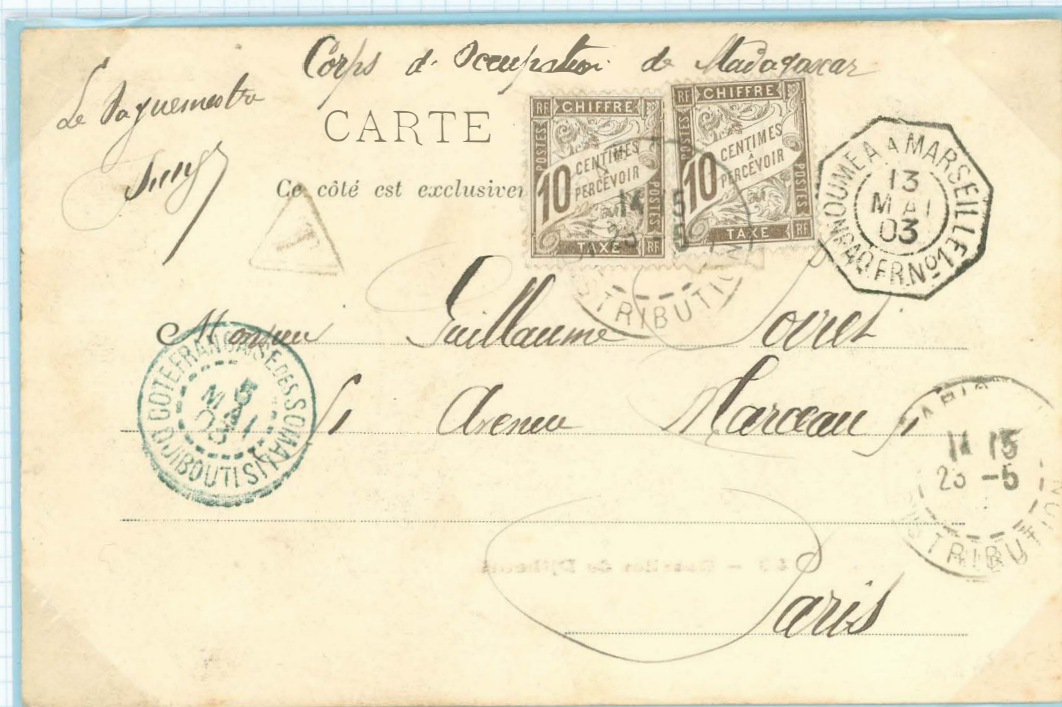 Corps d'Occupation de Madagascar
Le Vaguemestre
CARTE
Ce côté est exclusive
RF CHIFFRE
POSTES
10 CENTIMES À PERCEVOIR
POSTES
TAXE RF
RF CHIFFRE
POSTES
10 CENTIMES À PERCEVOIR
POSTES
TAXE RF
NOUMEA A MARSEILLE
13
MAI
03
PAQ.FR.Nº1
T
14 15
DISTRIBUTION
Monsieur Guillaume
51 Avenue Marceau 51
Paris
COTE FRANÇAISE DES SOMALIS
5
MAI
03
DJIBOUTI
PARIS
14 15
23 -5
DISTRIBUTION